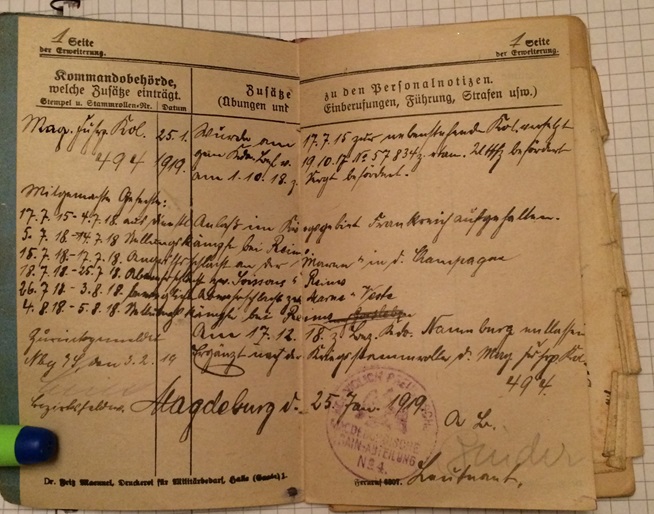 1 Seite
der Erweiterung.
1 Seite
der Erweiterung.
Kommandobehörde,
welche Zusätze einträgt.
Stempel u. Stammrollen-Nr.
Datum
Zusätze zu den Personalnotizen.
(Übungen und Einberufungen, Führung, Strafen usw.)
Mag. Fuhrp. Kol. 25.1. Wurde am 17.7.15 zur nebenstehend. Kol. versetzt
494 1919. 19.10.17 No 57834 z. etatm. befördert
am 1.10.18 z. Sergt. befördert.
Mitgemachte Gefechte:
17.7.15-4.7.18 aus dienstl. Anlaß im Kriegsgebiet Frankreich aufgehalten.
5.7.18-14.7.18 Stellungskämpfe bei Reims
15.7.18-17.7.18 Angriffsschlacht an der Marne u. in d. Champagne
18.7.18-25.7.18 Abwehrschlacht zw. Soissons u. Reims
26.7.18-3.8.18 bewegliche Abwehrschlacht zw. Marne u. Vesle
4.8.18-5.8.18 Stellungskämpfe bei Reims
Am 17.12.18 z. Bez. Kdo. Naumburg entlassen
Zurückgemeldet
Nbg den 3.2.19
Ergänzt nach der Kriegsstammrolle d. Mag. Fuhrp. Kol.
494.
Bezirksfeldw.
Magdeburg d. 25 Jan. 1919.
A. B.
Leutnant.
KÖNIGLICH PREUSSISCHE
MAGDEBURGISCHE
TRAIN-ABTEILUNG
No 4.
Dr. Fritz Maennel, Druckerei für Militärbedarf, Halle (Saale) 1.
Fernruf